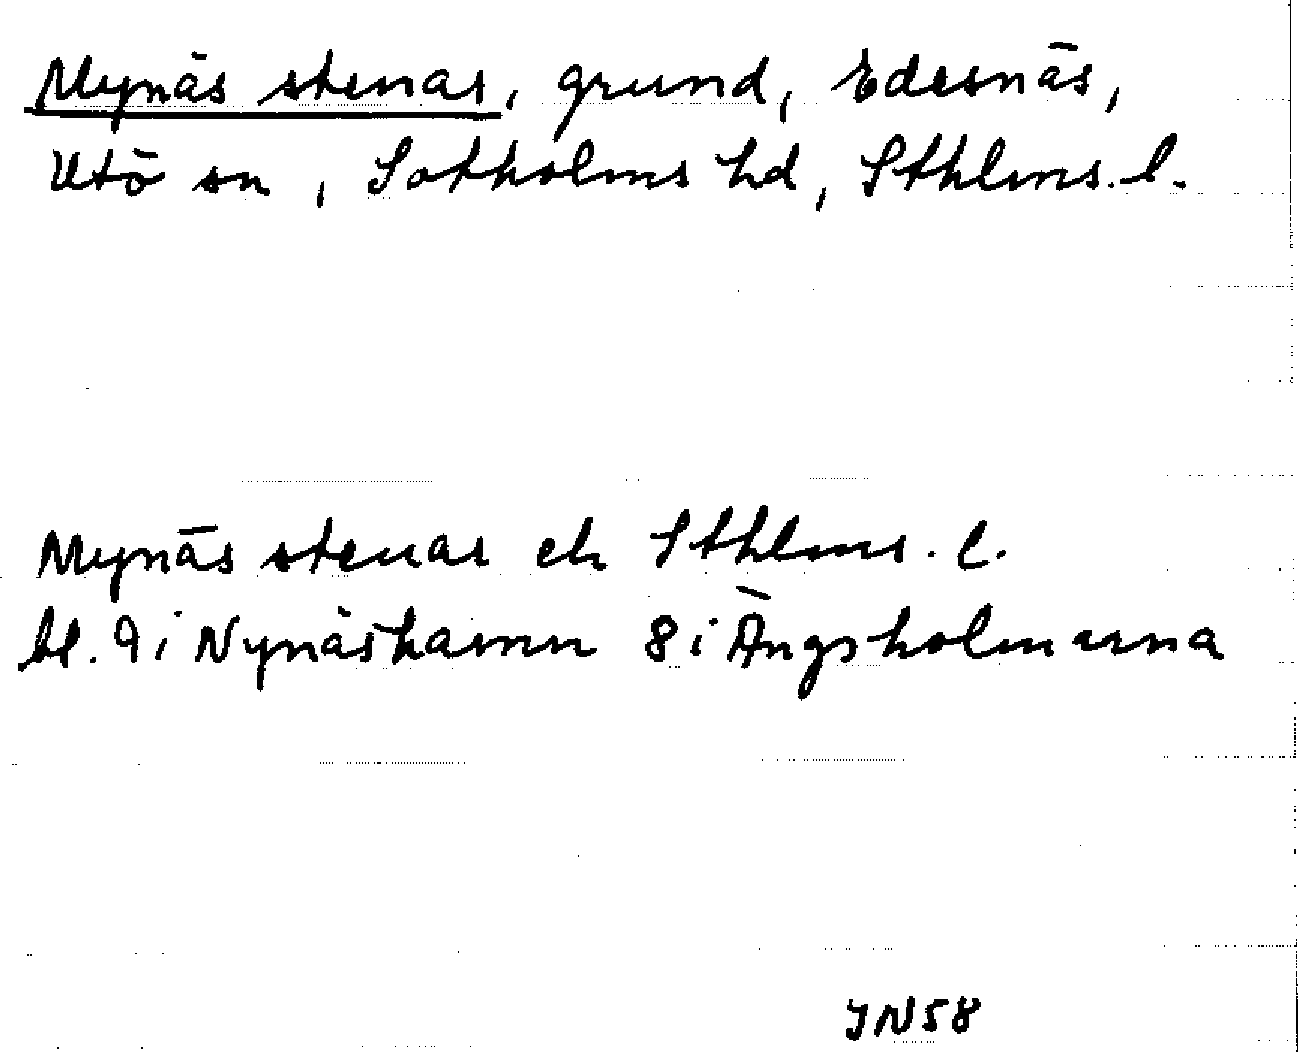 Mynäs stenar, grund, Edesnäs,
Utö sn, Sotholms hd, Sthlms. l.
Mynäs stenar ek Sthlms. l.
bl. 9 i Nynäshamn 8 i Ängsholmarna
JN58